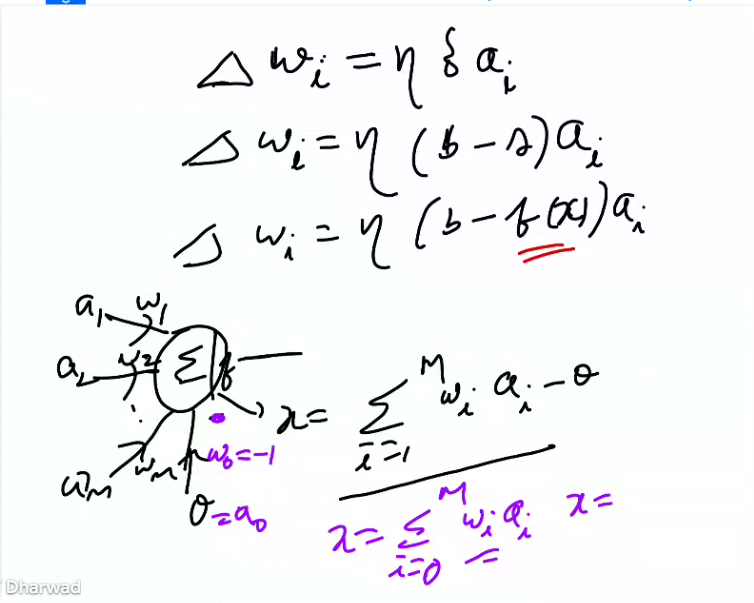 Δ wᵢ = η δ aᵢ
Δ wᵢ = η (b − s) aᵢ
Δ wᵢ = η (b − f(x)) aᵢ
a₁ w₁
a₂ w₂ Σ f
⋮
aM wM w₀ = −1
θ = a₀
x = Σ_{i=1}^{M} wᵢ aᵢ − θ
x = Σ_{i=0}^{M} wᵢ aᵢ x =
Dharwad